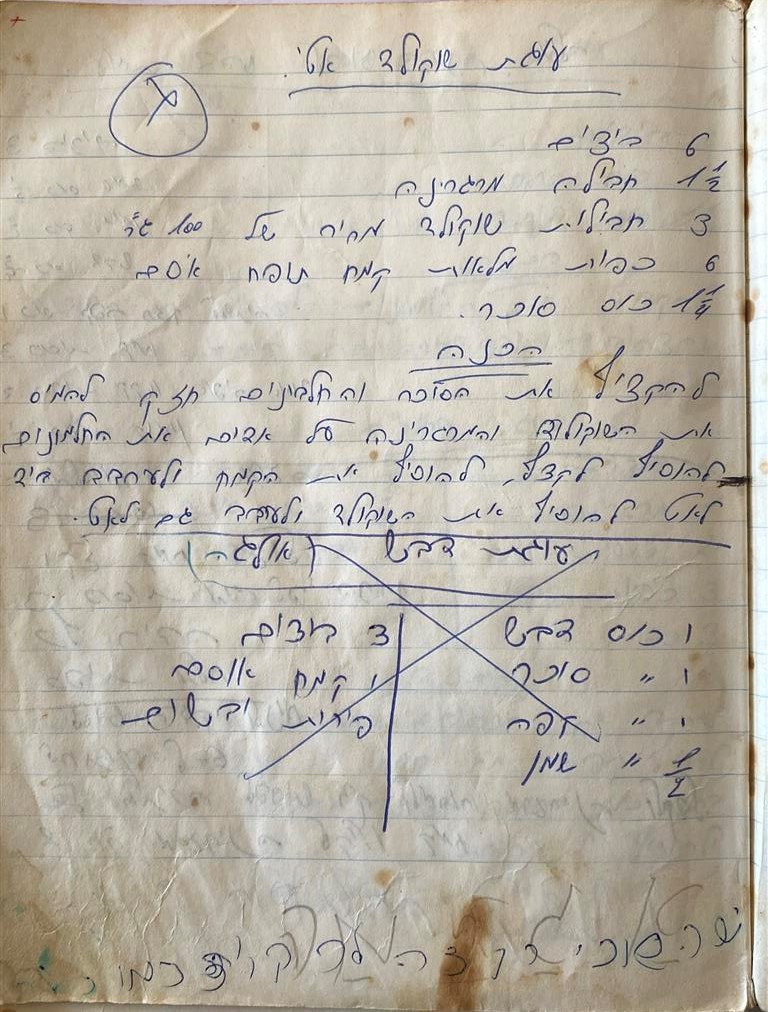 עוגת שוקולד אטי.
6 ביצים
1½ חבילה מרגרינה
3 חבילות שוקולד מריר של 100 גר'
6 כפות מלאות קמח תופח אסם
1¼ כוס סוכר.
הכנה
להקציף את הסוכר והחלבונים חזק להמיס
את השוקולד והמרגרינה על אדים את החלמונים
להוסיף לקצף, להוסיף את הקמח ולערבב ביד
לאט להוסיף את השוקולד ולערבב גם לאט.
עוגת דבש (אולגה)
1 כוס דבש
1 " סוכר
1 " קפה
½ " שמן
3 ביצים
1 קמח אוסם
פירות ובשום